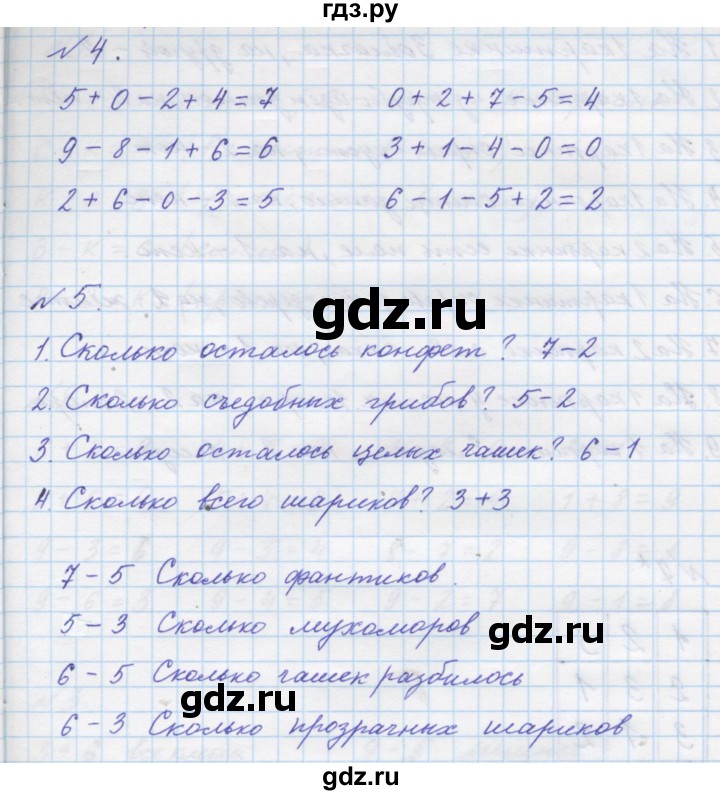 гдз.ру
№ 4.
5 + 0 - 2 + 4 = 7 0 + 2 + 7 - 5 = 4
9 - 8 - 1 + 6 = 6 3 + 1 - 4 - 0 = 0
2 + 6 - 0 - 3 = 5 6 - 1 - 5 + 2 = 2
№ 5.
gdz.ru
1. Сколько осталось конфет? 7 - 2
2. Сколько съедобных грибов? 5 - 2
3. Сколько осталось целых чашек? 6 - 1
4 Сколько всего шариков? 3 + 3
7 - 5 Сколько фантиков.
5 - 3 Сколько мухоморов
gdz.ru
6 - 5 Сколько чашек разбилось
gdz.ru
6 - 3 Сколько прозрачных шариков
gdz.ru